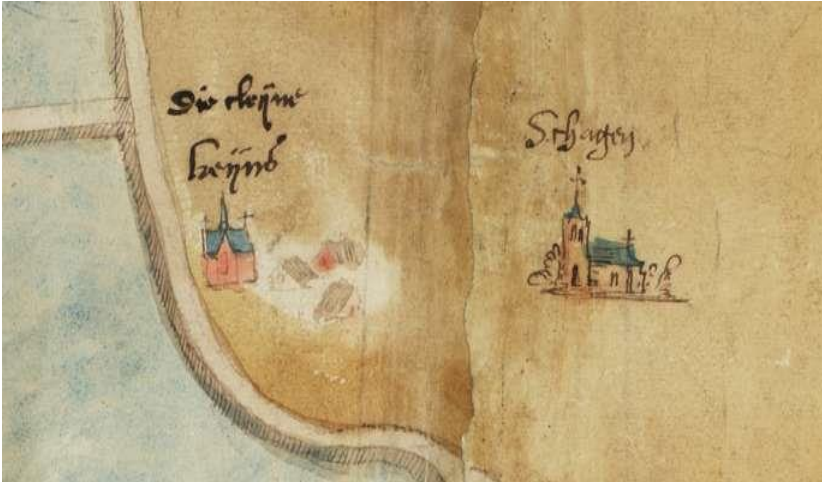 Die cleijne
keijns
Schagen